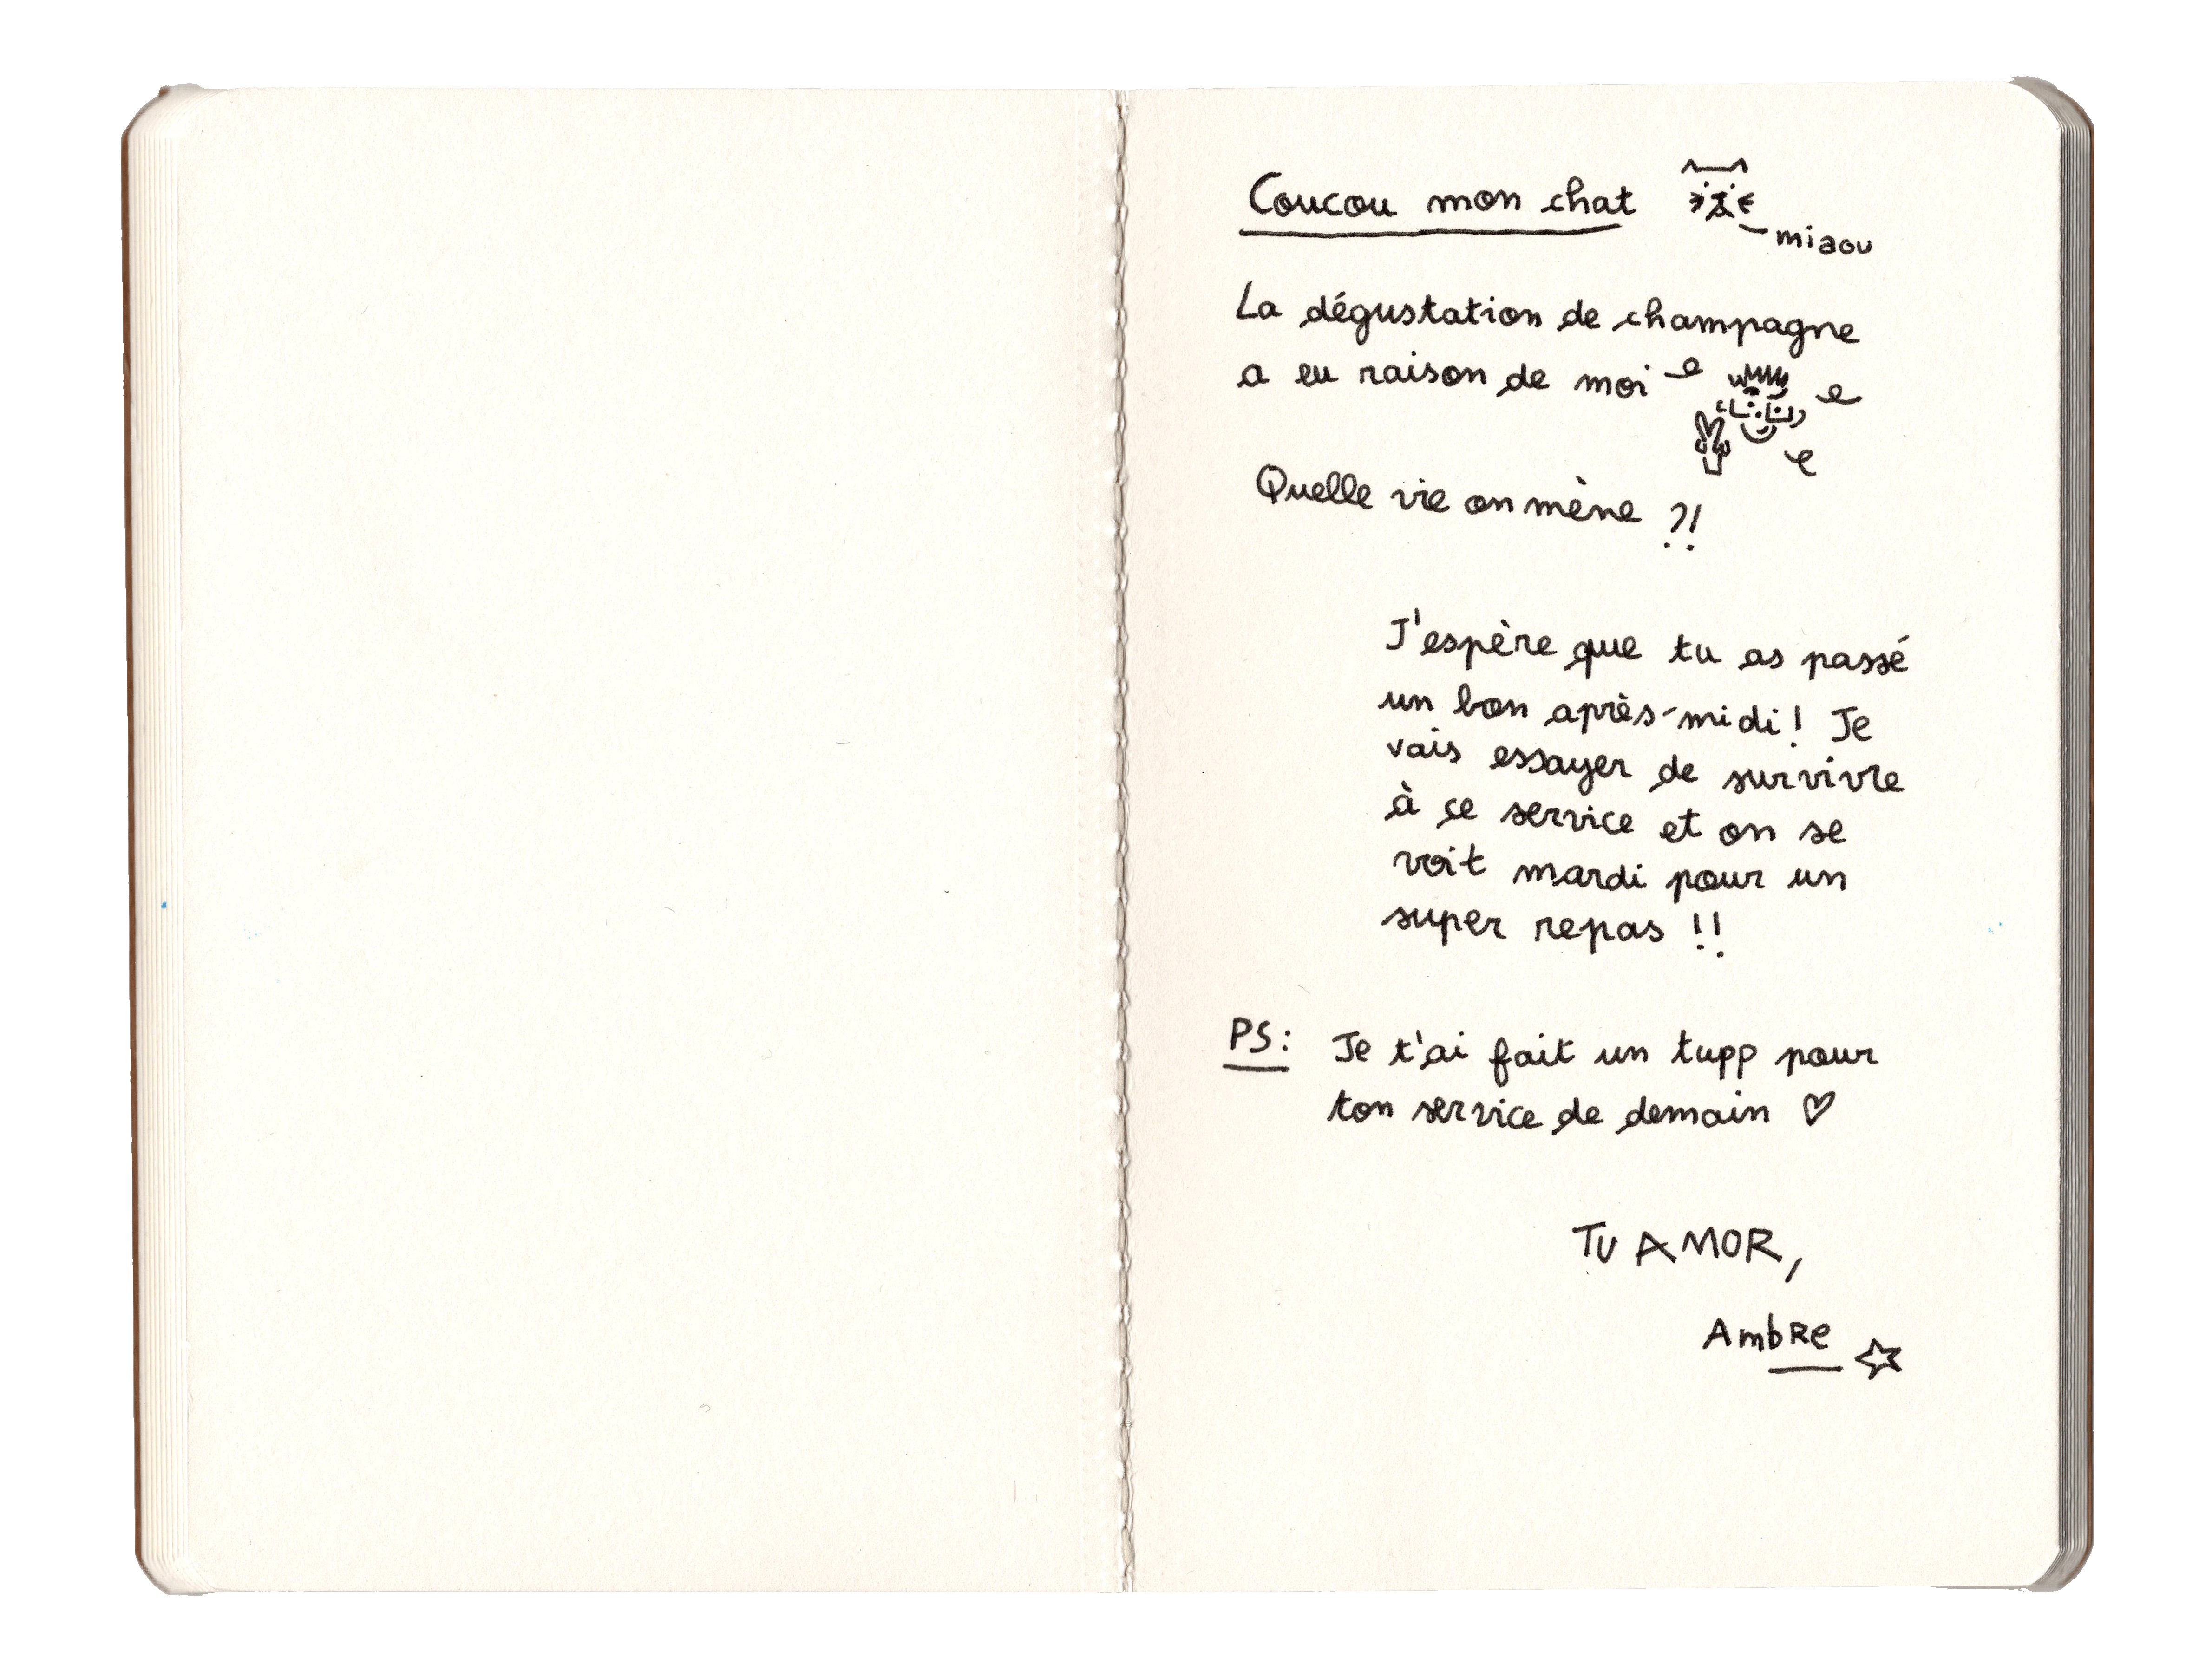 Coucou mon chat
miaou
La dégustation de champagne
a eu raison de moi
Quelle vie on mène ?!
J'espère que tu as passé
un bon après-midi! Je
vais essayer de survivre
à ce service et on se
voit mardi pour un
super repas !!
PS: Je t'ai fait un tupp pour
ton service de demain ♡
TU AMOR,
AmbRe ☆